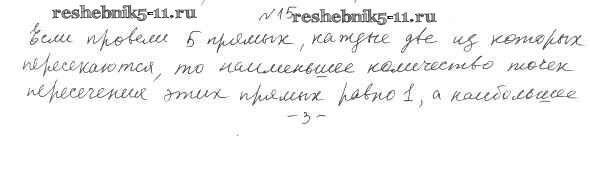 reshebnik5-11.ru
№15 reshebnik5-11.ru
Если провели 5 прямых, каждые две из которых
пересекаются, то наименьшее количество точек
пересечения этих прямых равно 1, а наибольшее
- 3 -